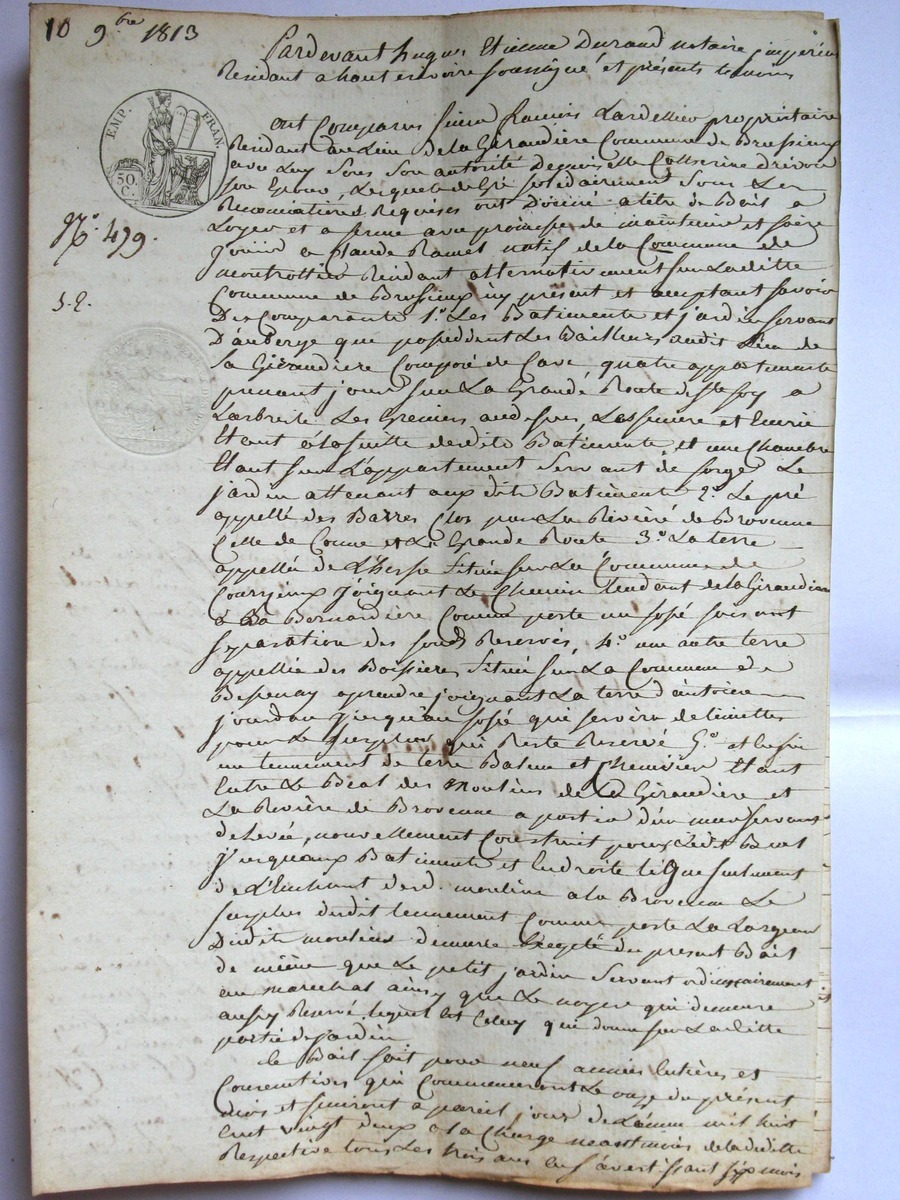 10 9bre 1813
Pardevant hugues Etienne Durand notaire imperial
Residant a hauterivoire soussigné et présents temoins
EMP. FRAN.
50 C.
ont Comparus Sieur françois Lardellier propriétaire
Residant au Lieu de la Giraudière Commune de Brussieux
avec Luy Sous Son autorité Demoiselle Catherine
Son Epouse, Lesquels de Gré solidairement Sous Les
Renonciations Requises ont Donné a titre de Bail a
Loyer et a ferme avec promesse de maintenir et faire
Jouir a Claude Ramel natif de la Commune de
montrottier Résidant alternativement sur Laditte
Commune de Brussieux icy présent et acceptant Savoir
N° 479.
Des Comparants 1° Les Batiments et jardin servant
D'auberge que possèdent Les Bailleurs audit Lieu de
La Giraudière Composé de Cave, quatre appartements
prenant jour sur La Grande Route de Ste foy a
Larbresle Les Greniers audessus, et Ecurie
Etant à la suitte desdits Batiments et une Chambre
Etant sur L'appartement Servant de forge Le
jardin attenant aux dits Batiments 2° Le pré
appellé des Barres Clos par La Rivière de Brevenne
Celle de Conne et La Grande Route 3° La terre
appellée de L'herse Située sur La Commune de
Courzieux joignant Le Chemin tendant de la Giraudière
à La Bernardière Comme porte un fossé faisant
séparation des fonds Reservés, 4° une autre terre
appellée des Boissières Située sur La Commune de
Bessenay aprendre joignant La terre d'antoine
jourdan jusqu'au fossé que servira de limittes
pour Le surplus qui Reste Reservé 5° et Enfin
un tennement de terre Balme et Chenevière Etant
Entre Le Béal des Moulins de La Giraudière et
La Rivière de Brevenne a partir d'un mur servant
de Levée, nouvellement Construit pour Ledit Béal
jusquaux Batiments et En droite Ligne seulement
de L'Enchant desd. moulins a la Brevenne Le
surplus dudit tennement Comme porte La Largeur
Dudit moulins demeure Excepté du present Bail
de même que Le petit jardin Servant ordinairement
au marechal ainsy que Le noyer qui demeure
aussy Reservé Lequel Est Celuy qui donne sur Laditte
partie de jardin
Le Bail fait pour neuf années Entières et
Consecutives qui Commenceront Le onze du présent
mois et finiront a pareil jour de L'année mil huit
cent vingt deux a la Charge neantmoins de la deditte
Respective tous Les trois ans En s'avertissant six mois